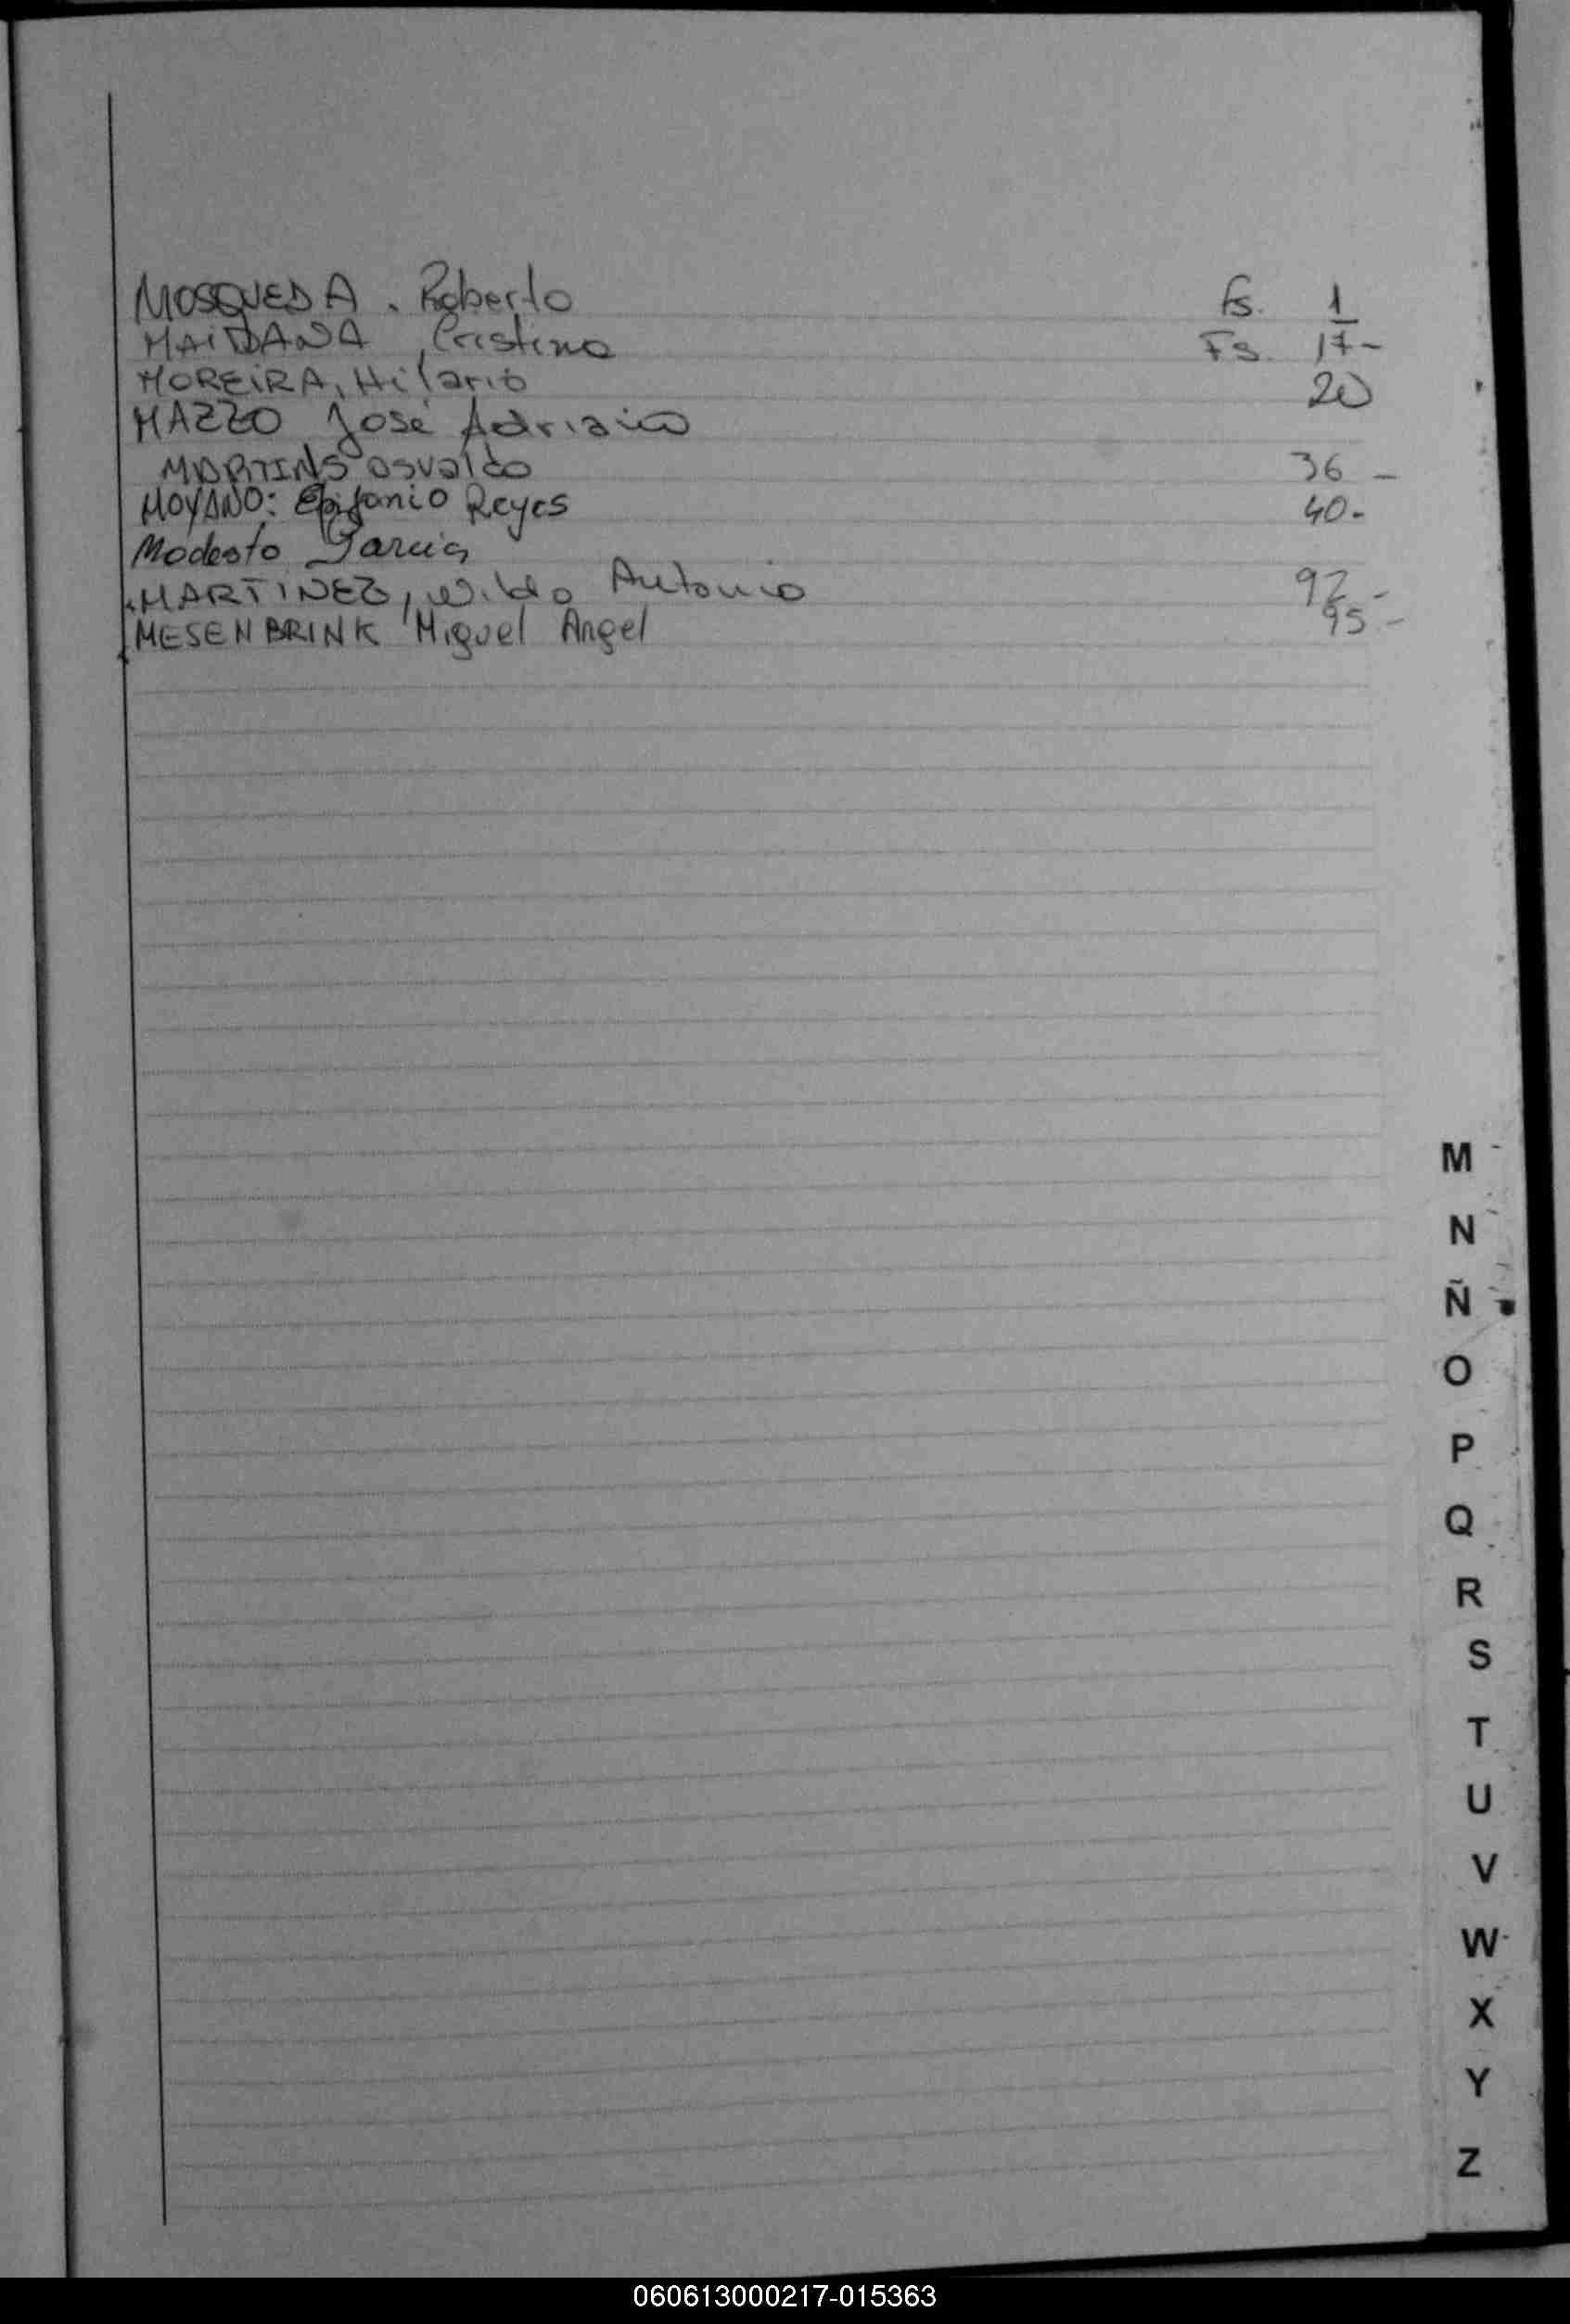 MOSQUEDA . Roberto Fs. 1
MAIDANA , Cristino Fs. 17-
MOREIRA, Hilario 20
MAZZO José Adriano
MARTINS Osvaldo 36 -
MOYANO: Epifanio Reyes 40-
Modesto Garcia
MARTINEZ, Wildo Antonio 92 -
MESENBRINK Miguel Angel 95 -
M
N
Ñ
O
P
Q
R
S
T
U
V
W
X
Y
Z
060613000217-015363